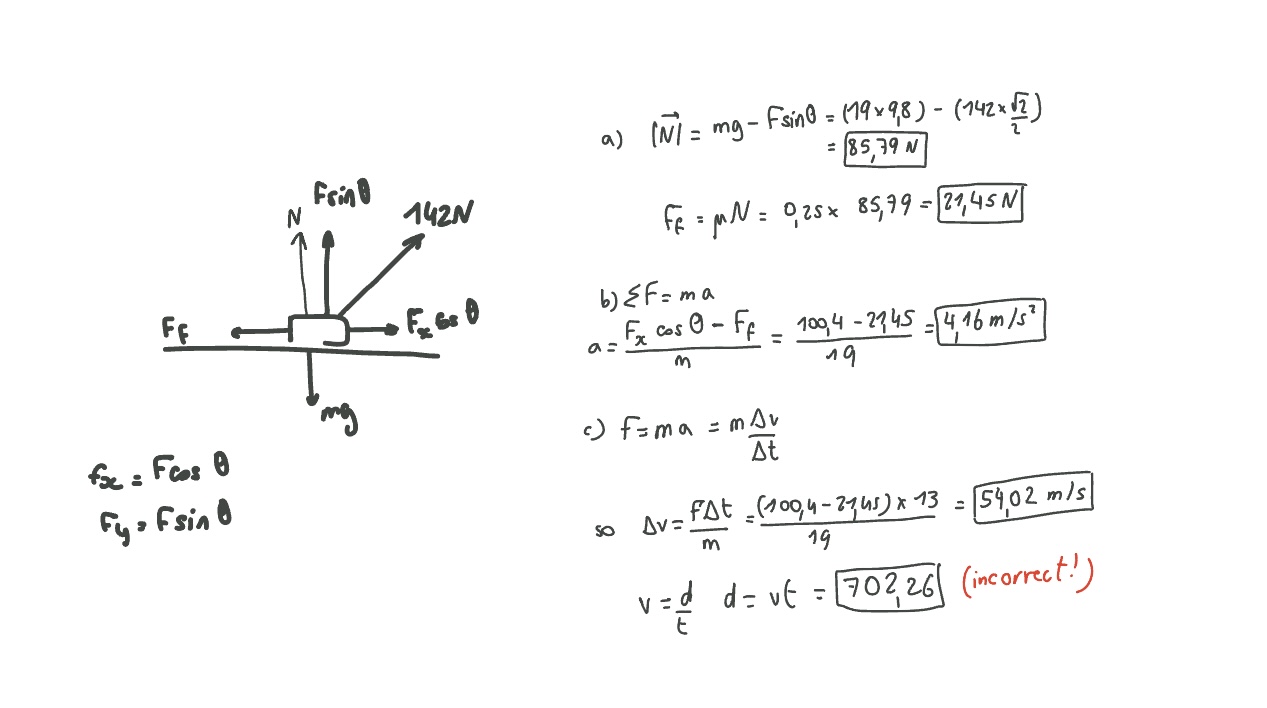 Fsinθ
N
142N
F_f
F_x cos θ
mg
f_x = Fcos θ
F_y = Fsin θ
a) |N⃗| = mg - Fsinθ = (19×9,8) - (142×√2/2)
= 85,79 N
F_f = μN = 0,25× 85,79 = 21,45 N
b) ΣF = ma
a = (F_x cos θ - F_f)/m = (100,4 - 21,45)/19 = 4,16 m/s²
c) F = ma = m Δv/Δt
so Δv = FΔt/m = (100,4 - 21,45) × 13/19 = 54,02 m/s
v = d/t d = vt = 702,26 (incorrect!)